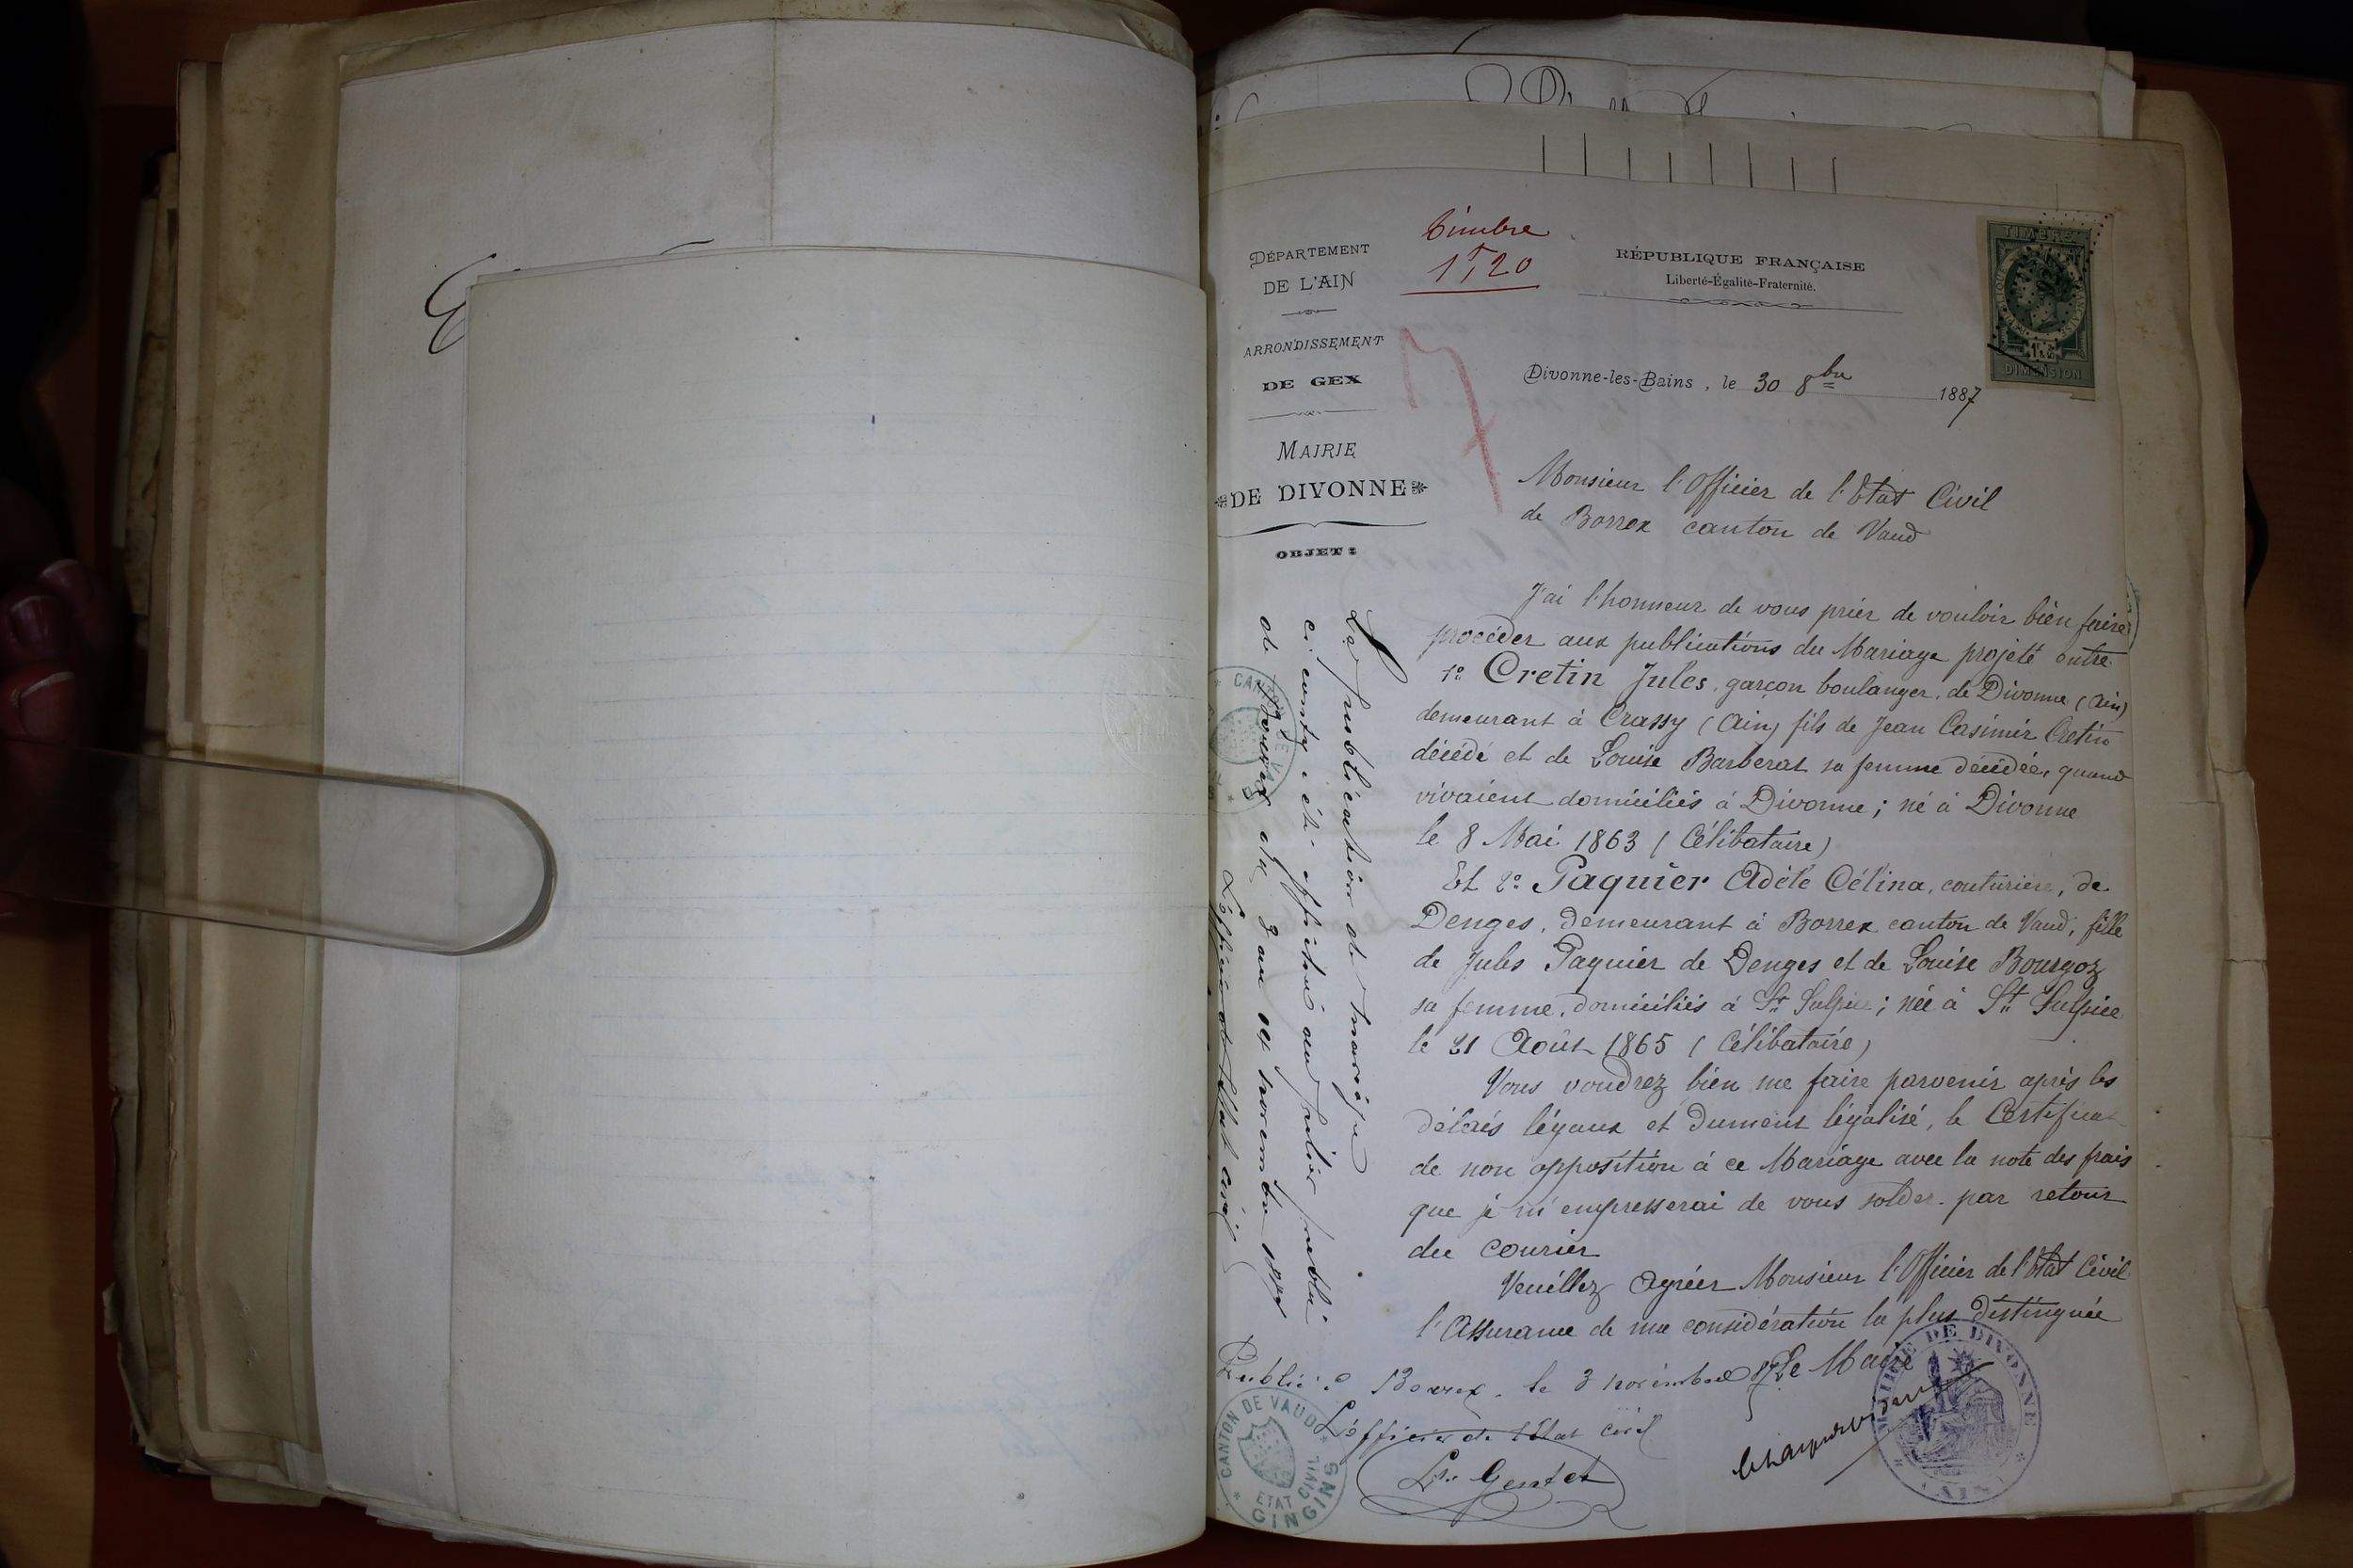 DÉPARTEMENT
DE L'AIN
ARRONDISSEMENT
DE GEX
MAIRIE
DE DIVONNE
OBJET :
timbre
1f,20
RÉPUBLIQUE FRANÇAISE
Liberté-Égalité-Fraternité.
TIMBRE
DIMENSION
Divonne-les-Bains, le 30 8bre 1887
7
Monsieur l'Officier de l'Etat Civil
de Borrex canton de Vaud
J'ai l'honneur de vous prier de vouloir bien faire
procéder aux publications du Mariage projeté entre
1º Cretin Jules, garçon boulanger, de Divonne (Ain)
demeurant à Crassy (Ain) fils de Jean Casimir Cretin
décédé et de Louise Barberat sa femme décédée, quand
vivaient domiciliés à Divonne; né à Divonne
le 8 Mai 1863 (Célibataire)
Et 2º Paquier Adèle Célina, couturière, de
Denges, demeurant à Borrex canton de Vaud, fille
de Jules Paquier de Denges et de Louise Bourgoz
sa femme, domiciliés à St Sulpice; née à St Sulpice
le 21 Août 1865 (Célibataire)
Vous voudrez bien me faire parvenir après les
délais légaux et dument légalisé, le Certificat
de non opposition à ce Mariage avec la note des frais
que je m'empresserai de vous solder par retour
du courier
Veuillez Agréer Monsieur l'Officier de l'Etat Civil
l'Assurance de ma considération la plus distinguée
Le Maire
MAIRIE DE DIVONNE
AIN
La publication de mariage
ci contre a été affichée au pilier public
de Borex du 3 au novembre 1887
L'officier de l'Etat civil
Publié à Borex, le 3 novembre 87
L'officier de l'Etat civil
Ls Gentet
CANTON DE VAUD
ETAT CIVIL
GINGINS